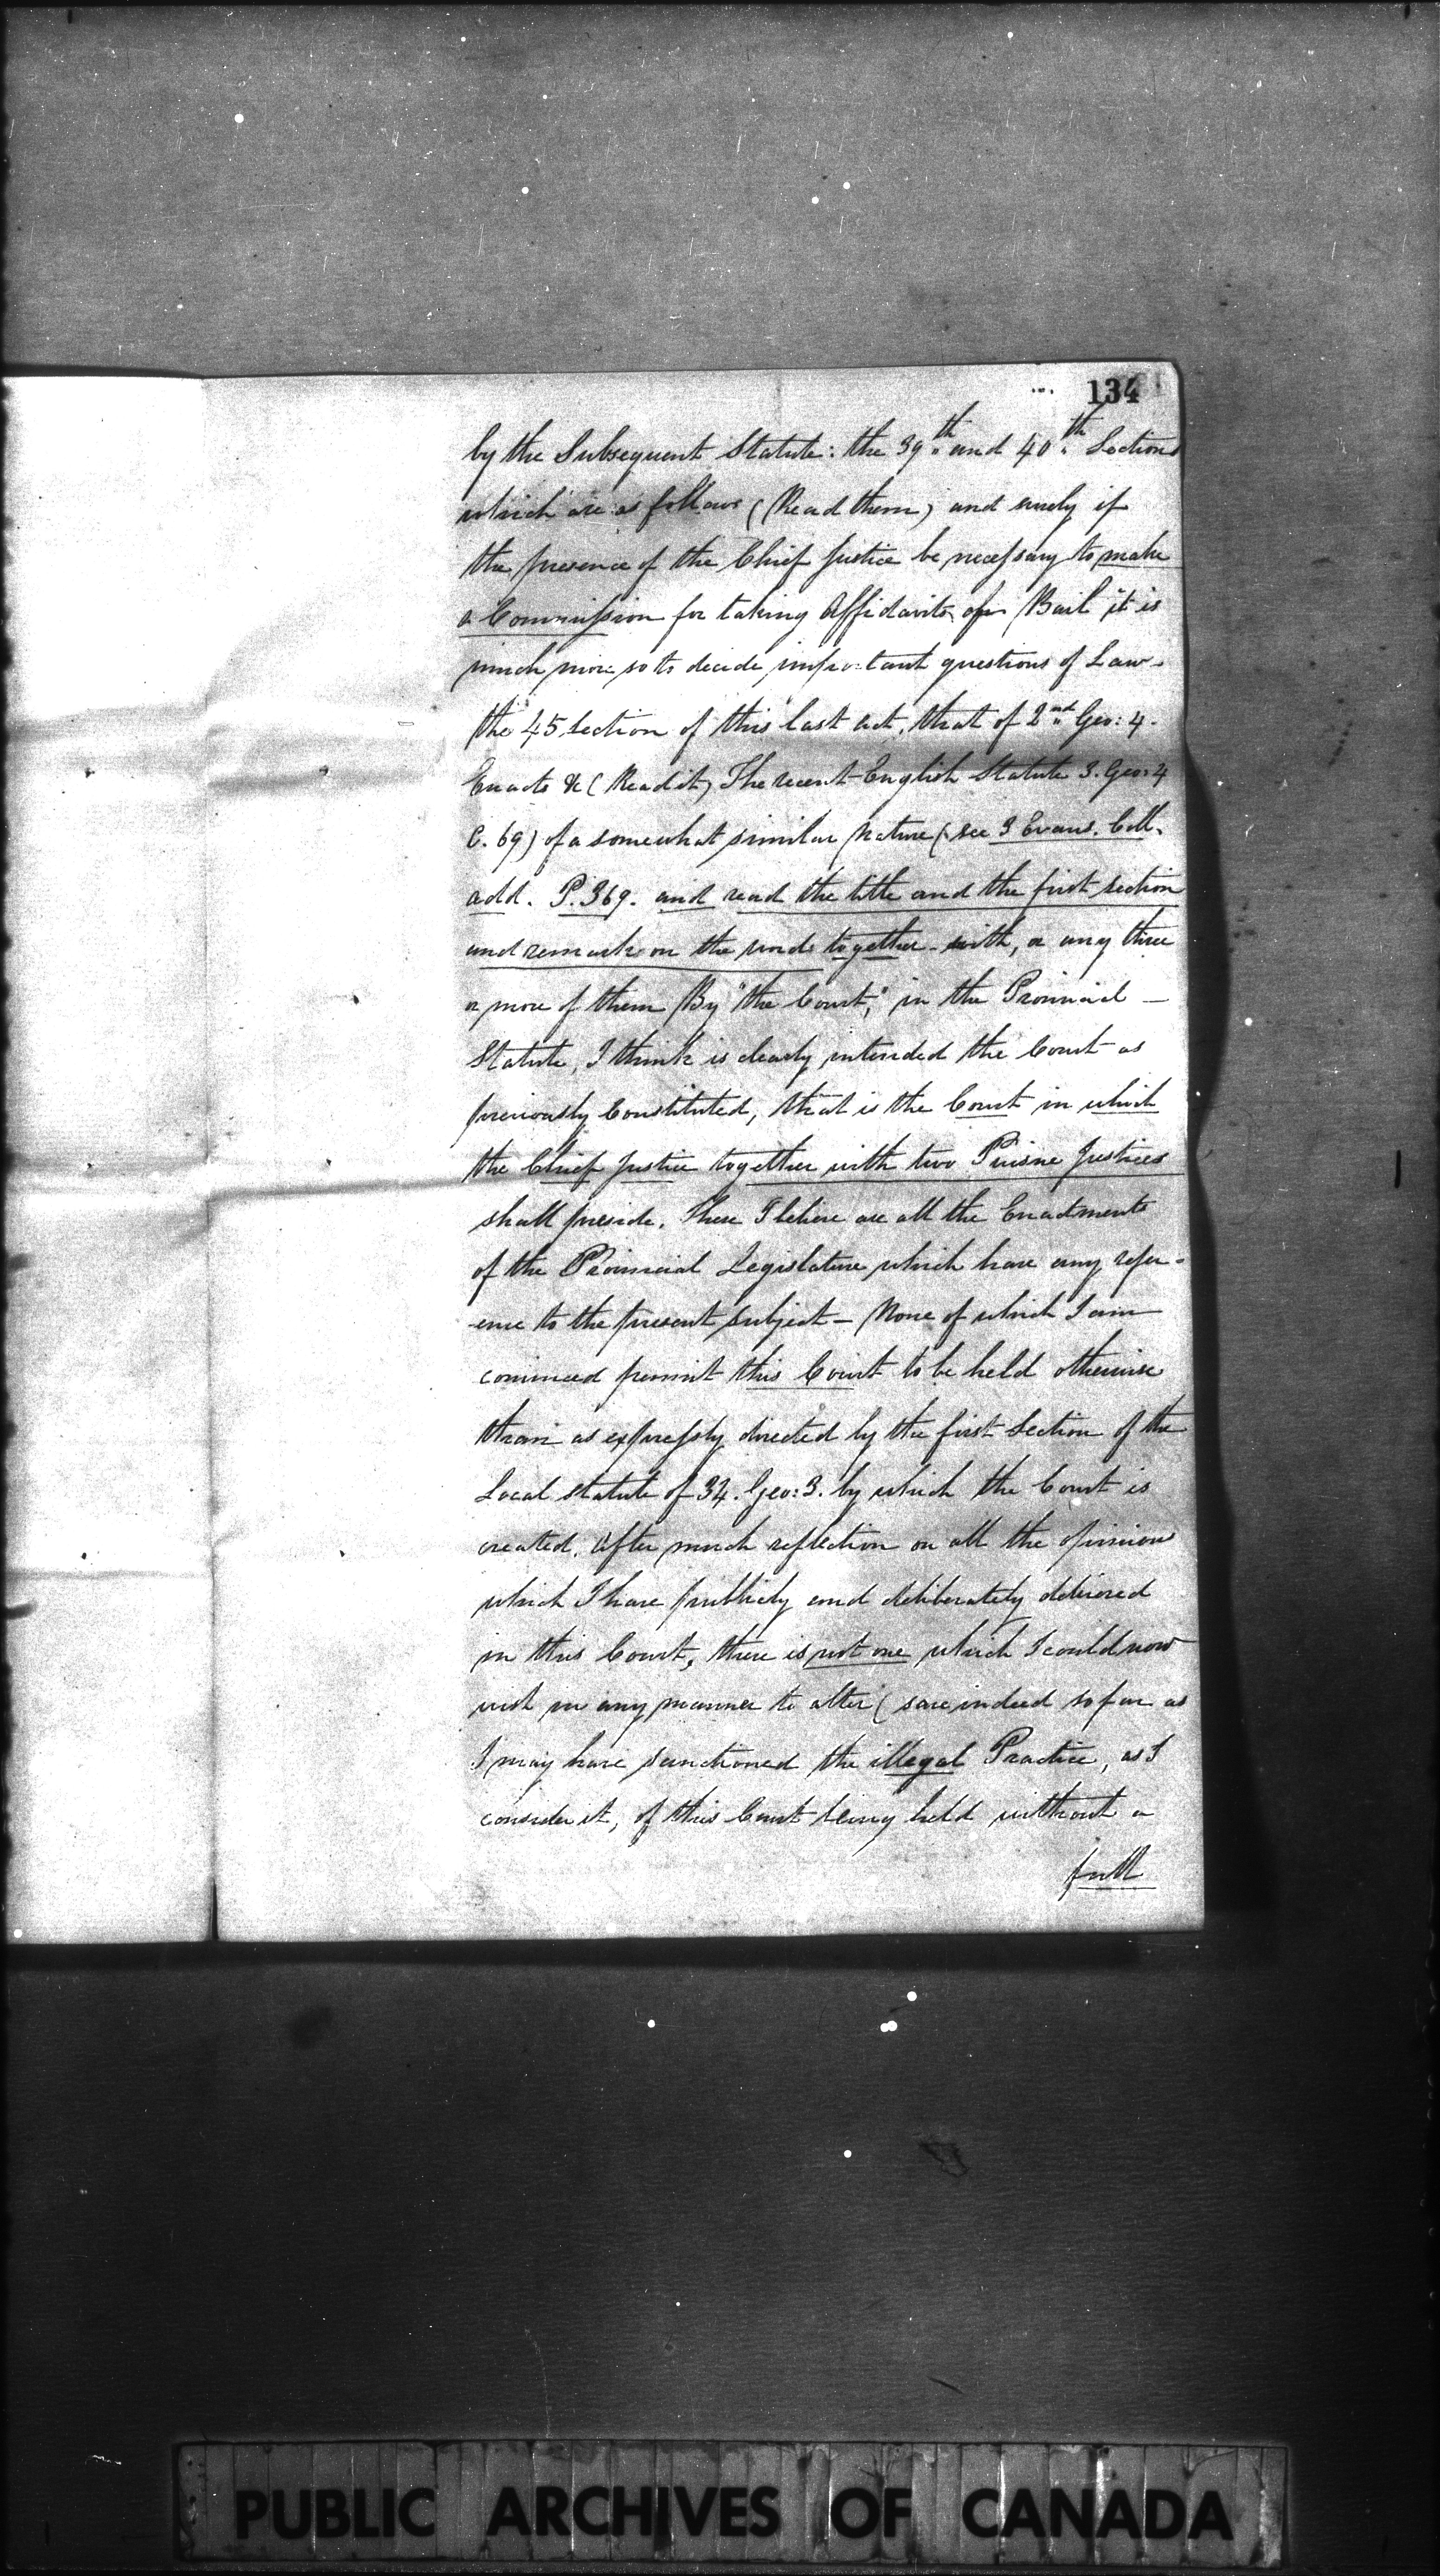 134
by the Subsequent Statute: the 39th and 40th Sections
which are as follows (Read them) and surely if
the presence of the Chief Justice be necessary to make
a Commission for taking Affidavits of Bail it is
much more so to decide important questions of Law-
the 45 Section of this last act, that of 2nd Geo: 4.
Enacts &c (Read it) The recent English Statute 3. Geo: 4
C. 69) of a somewhat similar Nature (see 3 Evans. Coll.
add. P. 369. and read the title and the first section
and remark on the words together with, or any three
or more of them By "the Court," in the Provincial —
Statute, I think is clearly intended the Court as
previously Constituted, that is the Court in which
the Chief Justice together with two Puisne Justices
shall preside. These I believe are all the Enactments
of the Provincial Legislature which have any refer-
-ence to the present subject — None of which I am
convinced permit this Court to be held otherwise
than as expressly directed by the first Section of the
Local Statute of 34. Geo: 3. by which the Court is
created. After much reflection on all the opinions
which I have publicly and deliberately delivered
in this Court, there is not one which I could now
wish in any manner to alter (save indeed so far as
I may have sanctioned the illegal Practice, as I
consider it, of this Court being held without a
full
PUBLIC ARCHIVES OF CANADA